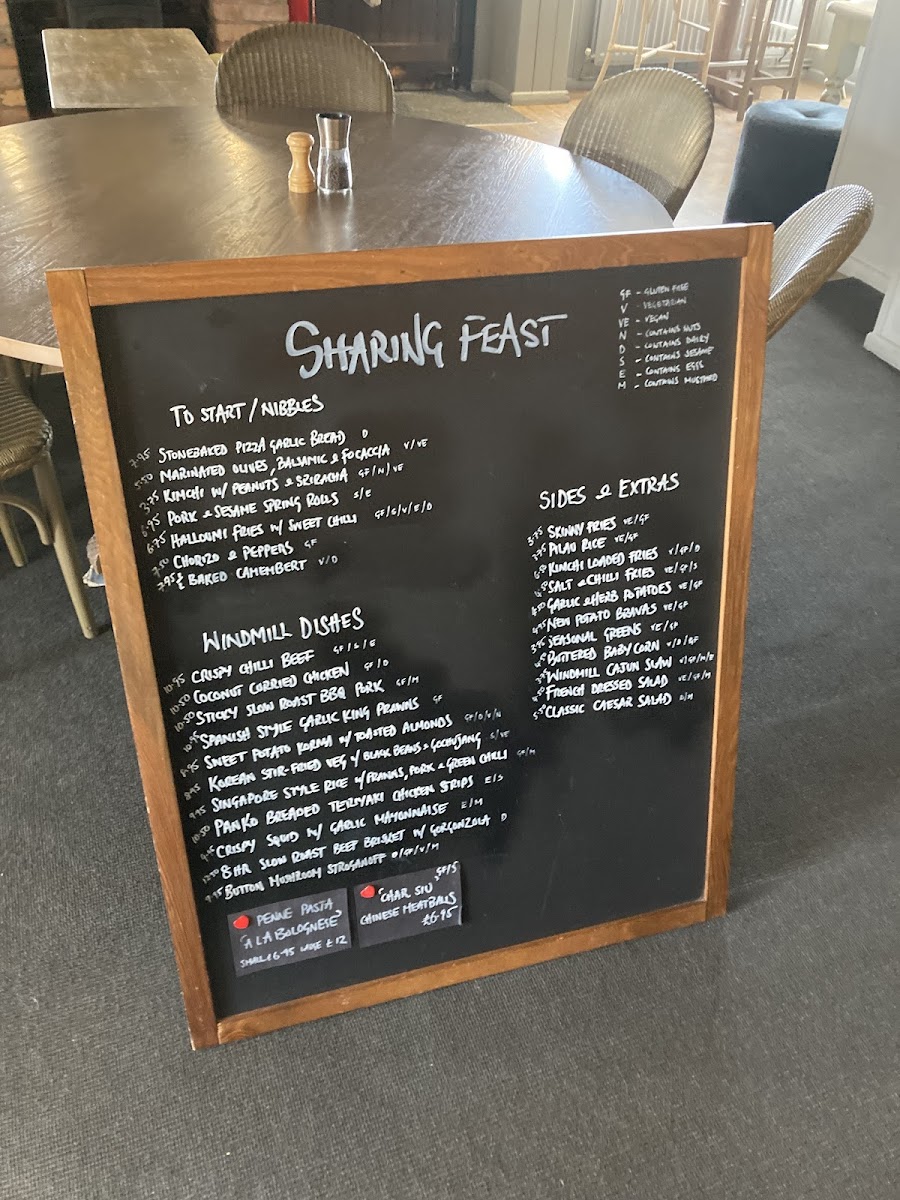 SHARING FEAST
GF - GLUTEN FREE
V - VEGETARIAN
VE - VEGAN
N - CONTAINS NUTS
D - CONTAINS DAIRY
S - CONTAINS SESAME
E - CONTAINS EGGS
M - CONTAINS MUSTARD
TO START / NIBBLES
7.95 STONEBAKED PIZZA GARLIC BREAD D
5.50 MARINATED OLIVES, BALSAMIC & FOCACCIA V/VE
3.75 KIMCHI W/ PEANUTS & SRIRACHA GF/N/VE
6.95 PORK & SESAME SPRING ROLLS S/E
6.75 HALLOUMI FRIES W/ SWEET CHILLI GF/S/V/E/D
7.50 CHORIZO & PEPPERS GF
7.95 ½ BAKED CAMEMBERT V/D
WINDMILL DISHES
10.95 CRISPY CHILLI BEEF GF/S/E
10.50 COCONUT CURRIED CHICKEN GF/D
10.50 STICKY SLOW ROAST BBQ PORK GF/M
10.95 SPANISH STYLE GARLIC KING PRAWNS GF
8.95 SWEET POTATO KORMA W/ TOASTED ALMONDS GF/D/V/N
8.95 KOREAN STIR-FRIED VEG W/ BLACK BEANS & GOCHUJANG S/VE
9.95 SINGAPORE STYLE RICE W/ PRAWNS, PORK & GREEN CHILLI GF/M
10.50 PANKO BREADED TERIYAKI CHICKEN STRIPS E/S
CRISPY SQUID W/ GARLIC MAYONNAISE E/M
8HR SLOW ROAST BEEF BRISKET W/ GORGONZOLA D
BUTTON MUSHROOM STROGANOFF D/GF/V/M
PENNE PASTA
'A LA BOLOGNESE'
SMALL £6.95 LARGE £12
GF/S
'CHAR SIU'
CHINESE MEATBALLS
£6.95
SIDES & EXTRAS
3.75 SKINNY FRIES VE/GF
PILAU RICE VE/GF
KIMCHI LOADED FRIES V/GF/D
SALT & CHILLI FRIES VE/GF/S
4.50 GARLIC & HERB POTATOES VE/GF
4.95 NEW POTATO BRAVAS VE/GF
3.95 SEASONAL GREENS VE/GF
BUTTERED BABY CORN V/D/GF
WINDMILL CAJUN SLAW V/GF/M/E
4.50 FRENCH DRESSED SALAD VE/GF/M
5.50 CLASSIC CAESAR SALAD D/M